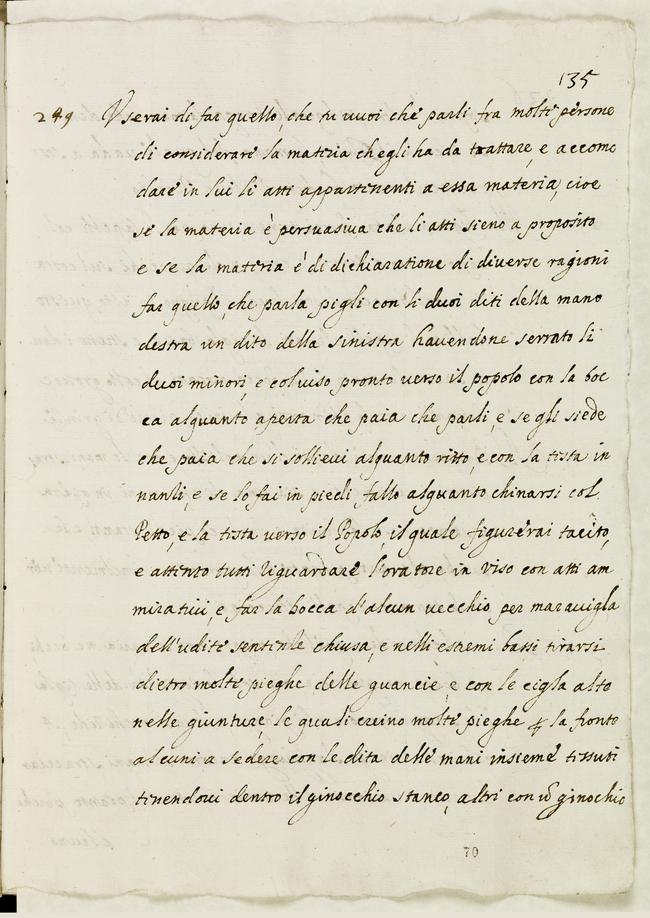 135
249 Userai di far quello, che tu vuoi che parli fra molte persone
di considerare la materia che gli ha da trattare, e accomo
dare in lui li atti appartinenti a essa materia, cioe
se la materia è persuasiva che li atti sieno a proposito
e se la materia è di dichiaratione di diverse ragioni
far quello, che parla pigli con li duoi diti della mano
destra un dito della sinistra havendone serrato li
duoi minori, e col viso pronto verso il popolo con la boc
ca alquanto aperta che paia che parli, e se gli siede
che paia che si sollievi alquanto ritto, e con la testa in
nanti, e se lo fai in piedi fallo alquanto chinarsi col
Petto, e la testa verso il Popolo, il quale figurerai tacito,
e attento tutti riguardare l'oratore in viso con atti am
mirativi, e far la bocca d'alcun vecchio per maraviglia
dell'udite sentenze chiusa, e nelli estremi bassi tirarsi
dietro molte pieghe delle guancie, e con le ciglia alte
nelle giunture, le quali creino molte pieghe p la fronte
alcuni a sedere con le dita delle mani insieme tessuti
tenendovi dentro il ginocchio stanco, altri con un ginochio
70